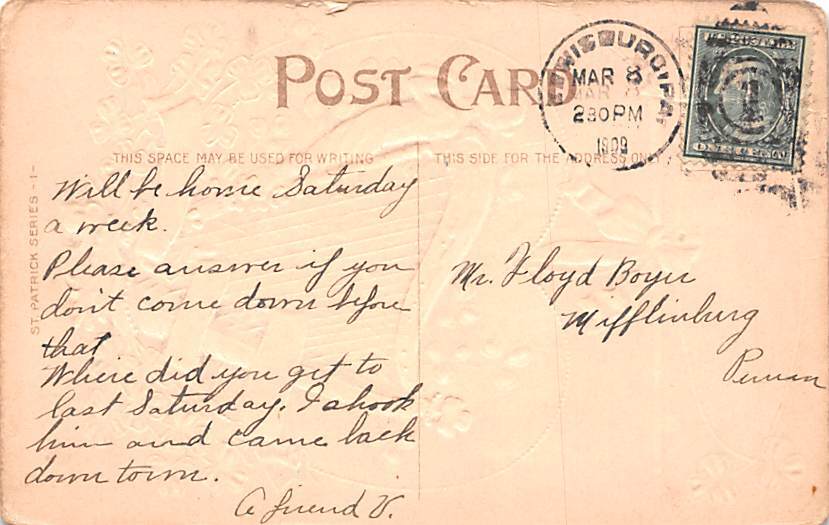 POST CARD
THIS SPACE MAY BE USED FOR WRITING
THIS SIDE FOR THE ADDRESS ONLY
ST PATRICK SERIES -1-
MAR 8
230PM
1909
Will be home Saturday
a week.
Please answer if you
don't come down before
that
Where did you get to
last Saturday. I shook
him and came back
down town.
A friend V.
Mr. Floyd Boyer
Mifflinburg